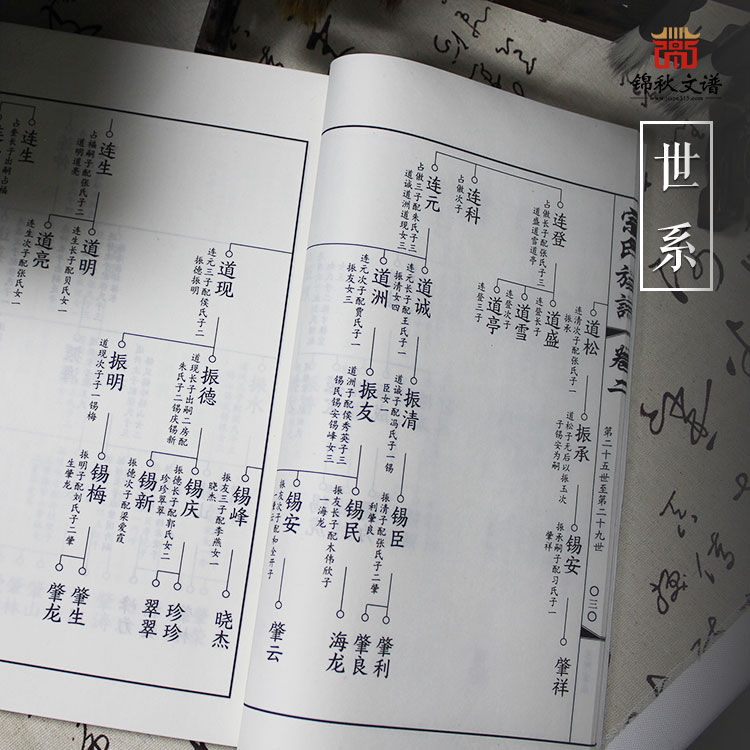 锦秋文谱
世系
宗氏族谱
卷二
第二十五世至第二十九世
〇三〇
道松
连清次子配张氏子一
振承
振承
道松子元后以振玉次
子锡安为嗣
锡安
振承嗣子配习氏子一
肇祥
肇祥
连登
占傲长子配张氏子三
道盛道雪道亭
道盛
连登长子
道雪
连登次子
道亭
连登三子
连科
占傲次子
连元
占傲三子配朱氏子三
道诚道洲道现女三
道诚
连元长子配王氏子一
振清女四
振清
道诚子配冯氏子一锡
臣女一
锡臣
振清子配张氏子二肇
利肇良
肇利
肇良
道洲
连元次子配贾氏子一
振友女三
振友
道洲子配侯秀英子三
锡民锡安锡峰女三
锡民
振友长子配木伟欣子
一海龙
海龙
锡安
肇云
锡峰
振友三子配李燕女一
晓杰
晓杰
道现
连元三子配侯氏子二
振德振明
振德
道现长子出嗣二房配
朱氏子二锡庆锡新
锡庆
振德长子配郭氏女二
珍珍翠翠
珍珍
翠翠
锡新
振德次子配梁爱霞
振明
道现次子子一锡梅
锡梅
振明子配刘氏子二肇
生肇龙
肇生
肇龙
连生
占福嗣子配张氏子二
道明道亮
道明
连生长子配贝氏女一
道亮
连生次子配张氏女一
连生
占奎长子出嗣占福